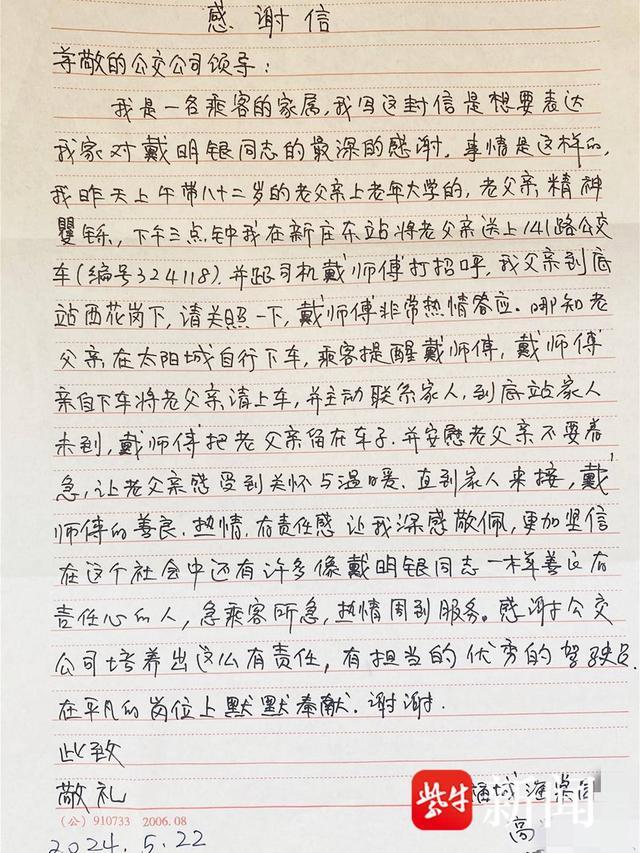 感谢信
尊敬的公交公司领导：
我是一名乘客的家属，我写这封信是想要表达
我家对戴明银同志的最深的感谢。事情是这样的，
我昨天上午带八十二岁的老父亲上老年大学的，老父亲精神
矍铄，下午三点钟我在新庄东站将老父亲送上141路公交
车（编号324118）.并跟司机戴师傅打招呼，我父亲到底
站西花岗下，请关照一下，戴师傅非常热情答应。哪知老
父亲在太阳城自行下车，乘客提醒戴师傅，戴师傅
亲自下车将老父亲请上车，并主动联系家人，到底站家人
未到，戴师傅把老父亲留在车子.并安慰老父亲不要着
急，让老父亲感受到关怀与温暖.直到家人来接，戴
师傅的善良.热情.有责任感让我深感敬佩，更加坚信
在这个社会中还有许多像戴明银同志一样善良有
责任心的人，急乘客所急，热情周到服务。感谢公交
公司培养出这么有责任，有担当的优秀的驾驶员.
在平凡的岗位上默默奉献.谢谢.
此致
敬礼
高
（公）910733 2006.08
2024.5.22
紫牛新闻